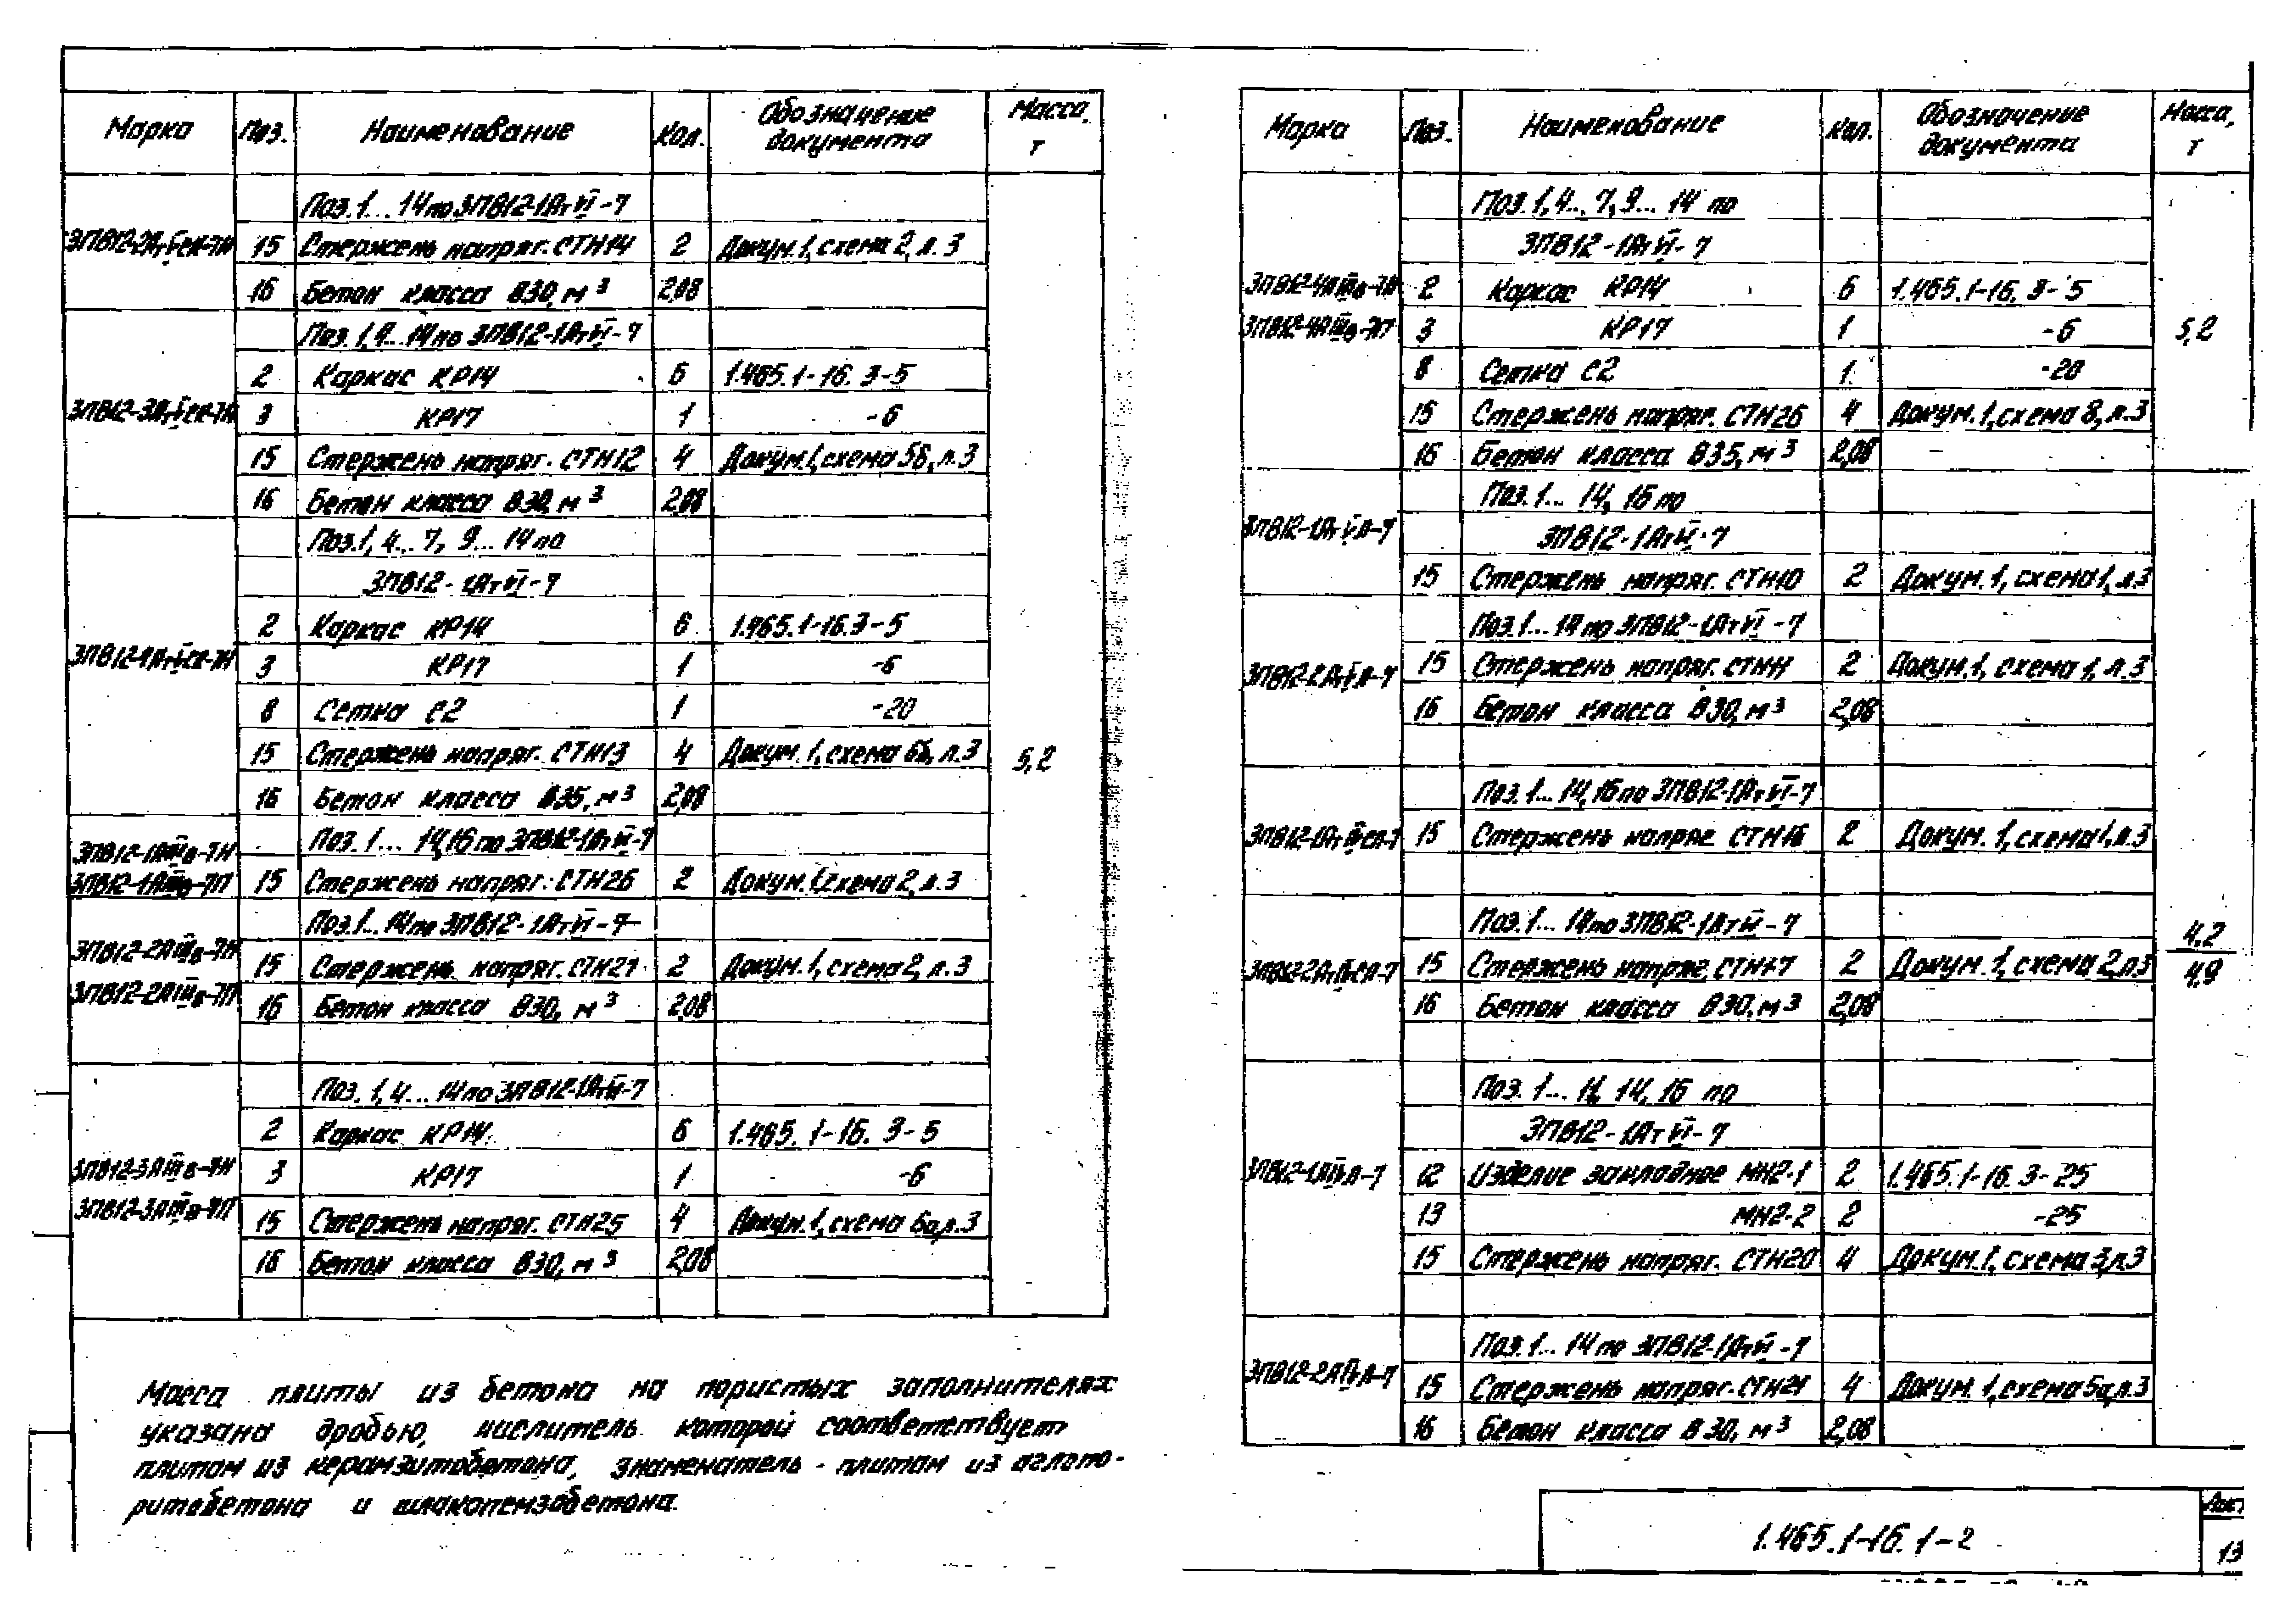 Марка Поз. Наименование Кол. Обозначение документа Масса, т
Поз.1... 14 по 3ПВ12-1АтVI-7
3ПВ12-2АтVСК-7Н 15 Стержень напряг. СТН14 2 Докум.1, схема 2, л.3
16 Бетон класса В30, м³ 2,08
Поз.1,4...14 по 3ПВ12-1АтVI-7
2 Каркас КР14 6 1.465.1-16.3-5
3ПВ12-3АтVСК-7Н 3 КР17 1 -6
15 Стержень напряг. СТН12 4 Докум.1, схема 5б, л.3
16 Бетон класса В30, м³ 2,08
Поз.1, 4... 7, 9... 14 по
3ПВ12-1АтVI-7
2 Каркас КР14 6 1.465.1-16.3-5
3ПВ12-4АтVСК-7Н 3 КР17 1 -6
8 Сетка С2 1 -20
15 Стержень напряг. СТН13 4 Докум.1, схема 6б, л.3 5,2
16 Бетон класса В35, м³ 2,08
3ПВ12-1АIIIв-7Н Поз.1... 14,16 по 3ПВ12-1АтVI-7
3ПВ12-1АIIIв-7П 15 Стержень напряг. СТН26 2 Докум.1, схема 2, л.3
Поз.1... 14 по 3ПВ12-1АтVI-7
3ПВ12-2АIIIв-7Н 15 Стержень напряг. СТН27 2 Докум.1, схема 2, л.3
3ПВ12-2АIIIв-7П 16 Бетон класса В30, м³ 2,08
Поз.1,4...14 по 3ПВ12-1АтVI-7
2 Каркас КР14 6 1.465.1-16.3-5
3ПВ12-3АIIIв-7Н 3 КР17 1 -6
3ПВ12-3АIIIв-7П 15 Стержень напряг. СТН25 4 Докум.1, схема 6а, л.3
16 Бетон класса В30, м³ 2,08
Масса плиты из бетона на пористых заполнителях
указана дробью, числитель которой соответствует
плитам из керамзитобетона, знаменатель - плитам из аглопо-
ритобетона и шлакопемзобетона.
Марка Поз. Наименование Кол. Обозначение документа Масса, т
Поз.1,4... 7,9... 14 по
3ПВ12-1АтVI-7
3ПВ12-4АIIIв-7Н 2 Каркас КР14 6 1.465.1-16.3-5
3ПВ12-4АIIIв-7П 3 КР17 1 -6 5,2
8 Сетка С2 1 -20
15 Стержень напряг. СТН26 4 Докум.1, схема 8, л.3
16 Бетон класса В35, м³ 2,08
Поз.1... 14, 16 по
3ПВ12-1АтVЛ-7 3ПВ12-1АтVI-7
15 Стержень напряг. СТН10 2 Докум.1, схема 1, л.3
Поз.1... 14 по 3ПВ12-1АтVI-7
3ПВ12-2АтVЛ-7 15 Стержень напряг. СТН11 2 Докум.1, схема 1, л.3
16 Бетон класса В30, м³ 2,08
Поз.1... 14,16 по 3ПВ12-1АтVI-7
3ПВ12-1АтIVСЛ-7 15 Стержень напряг СТН16 2 Докум.1, схема 1, л.3
Поз.1... 14 по 3ПВ12-1АтVI-7 4,2
3ПВ12-2АтIVСЛ-7 15 Стержень напряг. СТН17 2 Докум.1, схема 2, л.3 4,9
16 Бетон класса В30, м³ 2,08
Поз.1... 11, 14, 16 по
3ПВ12-1АтVI-7
3ПВ12-1АIVЛ-7 12 Изделие закладное МН2-1 2 1.465.1-16.3-25
13 МН2-2 2 -25
15 Стержень напряг. СТН20 4 Докум.1, схема 3, л.3
Поз.1... 14 по 3ПВ12-1АтVI-7
3ПВ12-2АIVЛ-7 15 Стержень напряг. СТН21 4 Докум.1, схема 5а, л.3
16 Бетон класса В30, м³ 2,08
1.465.1-16.1-2
Лист
13